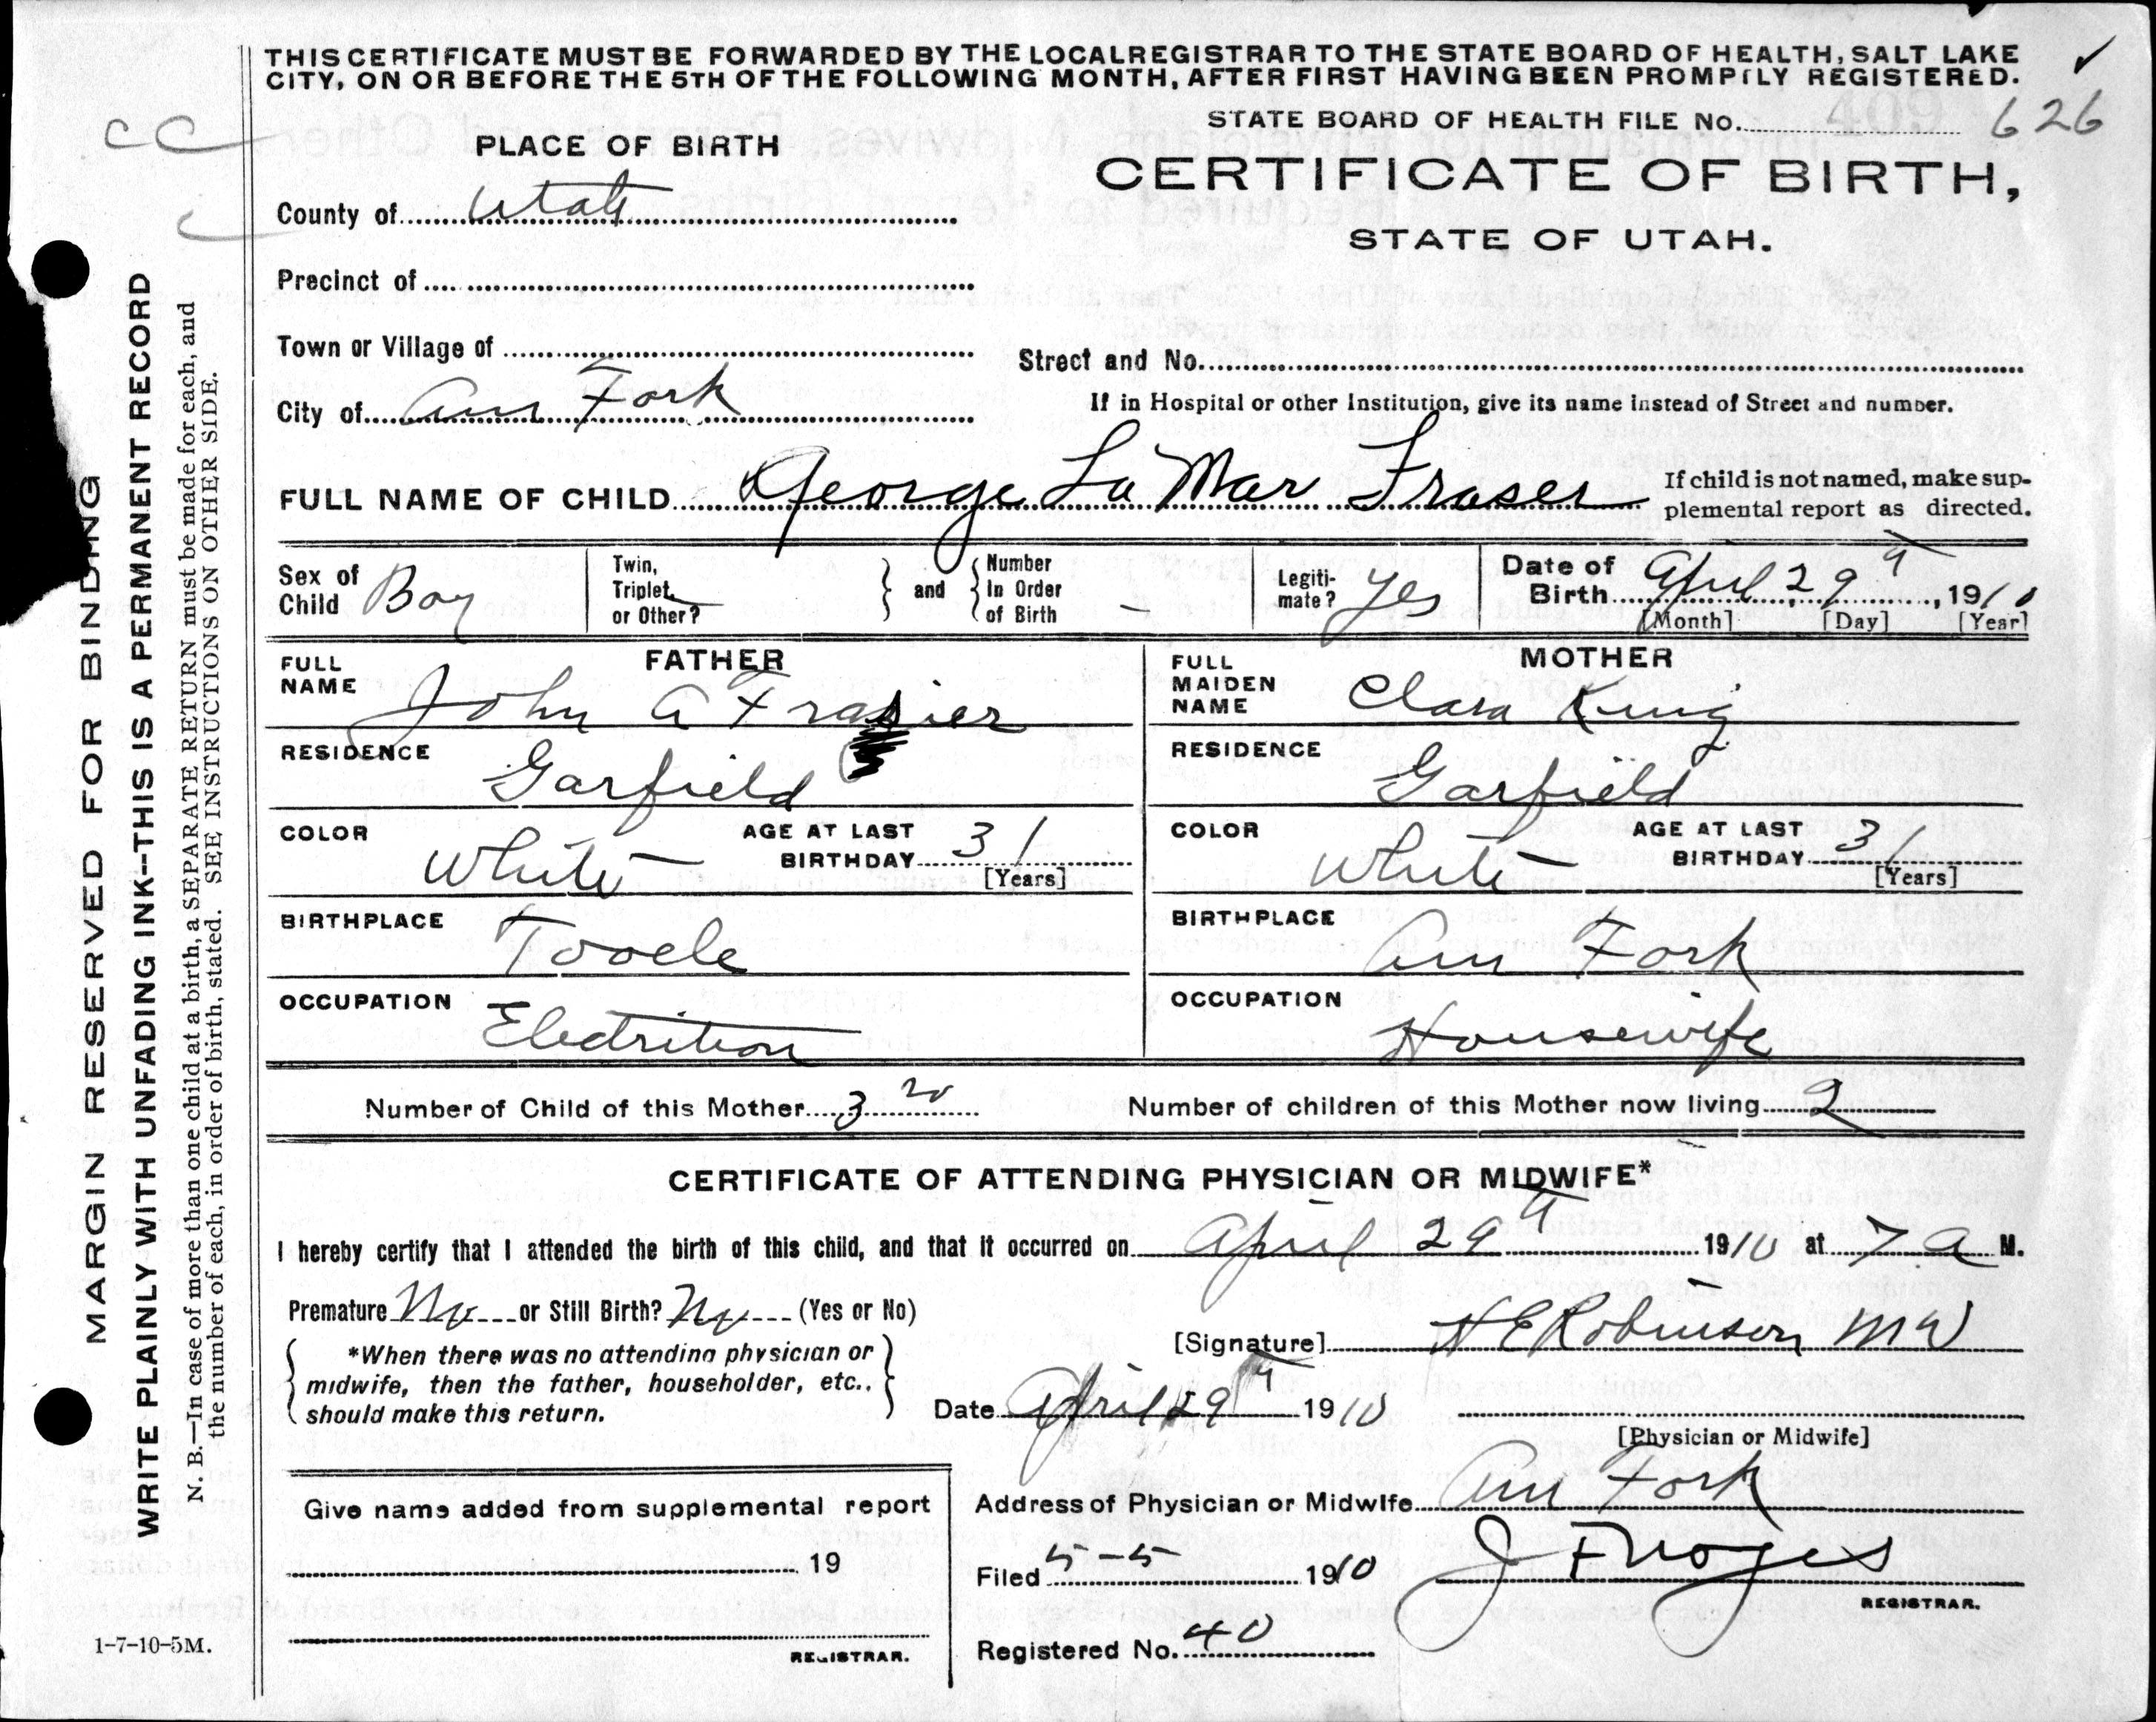 THIS CERTIFICATE MUST BE FORWARDED BY THE LOCAL REGISTRAR TO THE STATE BOARD OF HEALTH, SALT LAKE
CITY, ON OR BEFORE THE 5TH OF THE FOLLOWING MONTH, AFTER FIRST HAVING BEEN PROMPTLY REGISTERED.
STATE BOARD OF HEALTH FILE No. 409 626
CC
PLACE OF BIRTH
CERTIFICATE OF BIRTH,
STATE OF UTAH.
County of Utah
Precinct of
Town or Village of
Street and No.
City of Am Fork
If in Hospital or other Institution, give its name instead of Street and number.
FULL NAME OF CHILD George La Mar Fraser
If child is not named, make sup-
plemental report as directed.
Sex of Child Boy
Twin, Triplet, or Other?
and
Number In Order of Birth –
Legiti-mate? Yes
Date of Birth April 29th, 1910
[Month] [Day] [Year]
FATHER
FULL NAME John A Frasier
RESIDENCE Garfield
COLOR White
AGE AT LAST BIRTHDAY 31
[Years]
BIRTHPLACE Tooele
OCCUPATION Electrition
MOTHER
FULL MAIDEN NAME Clara King
RESIDENCE Garfield
COLOR White
AGE AT LAST BIRTHDAY 31
[Years]
BIRTHPLACE Am Fork
OCCUPATION Housewife
Number of Child of this Mother 3
Number of children of this Mother now living 2
CERTIFICATE OF ATTENDING PHYSICIAN OR MIDWIFE*
I hereby certify that I attended the birth of this child, and that it occurred on April 29th 1910 at 7 a M.
Premature No or Still Birth? No (Yes or No)
*When there was no attending physician or
midwife, then the father, householder, etc.,
should make this return.
[Signature] H E Robinson MW
Date April 29th 1910
[Physician or Midwife]
Address of Physician or Midwife Am Fork
Give name added from supplemental report
19
REGISTRAR.
Filed 5-5 1910
J F Noyes
REGISTRAR.
Registered No. 40
1-7-10-5M.
MARGIN RESERVED FOR BINDING
WRITE PLAINLY WITH UNFADING INK--THIS IS A PERMANENT RECORD
N. B.—In case of more than one child at a birth, a SEPARATE RETURN must be made for each, and
the number of each, in order of birth, stated. SEE INSTRUCTIONS ON OTHER SIDE.